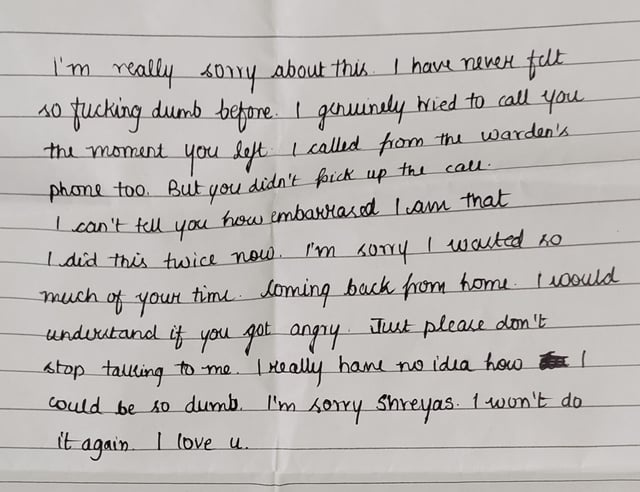 I'm really sorry about this. I have never felt
so fucking dumb before. I genuinely tried to call you
the moment you left. I called from the warden's
phone too. But you didn't pick up the call.
I can't tell you how embarrased I am that
I did this twice now. I'm sorry I wasted so
much of your time. Coming back from home. I would
understand if you got angry. Just please don't
stop talking to me. I really have no idea how I
could be so dumb. I'm sorry Shreyas. I won't do
it again. I love u.